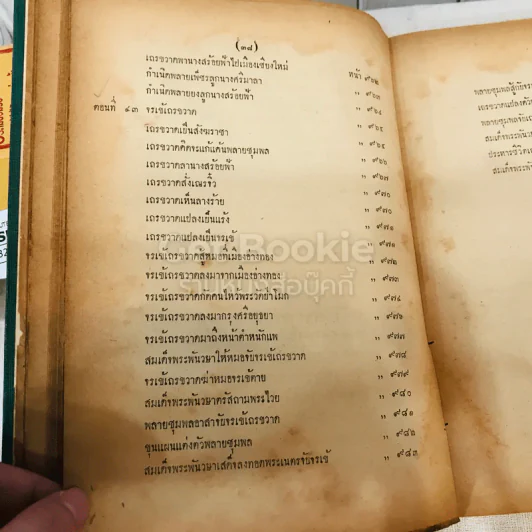 (๓๘)
เถรขวาดพานางสร้อยฟ้าไปเมืองเชียงใหม่ หน้า ๙๖๒
กำเนิดพลายเพ็ชรลูกนางศรีมาลา " ๙๖๓
กำเนิดพลายยงลูกนางสร้อยฟ้า " ๙๖๔
ตอนที่ ๔๓ จรเข้เถรขวาด " ๙๖๔
เถรขวาดเป็นสังฆราชา " ๙๖๕
เถรขวาดคิดจะแก้แค้นพลายชุมพล " ๙๖๕
เถรขวาดลานางสร้อยฟ้า " ๙๖๗
เถรขวาดสั่งเณรจิ๋ว " ๙๗๐
เถรขวาดเห็นลางร้าย " ๙๗๐
เถรขวาดแปลงเป็นแร้ง " ๙๗๑
เถรขวาดแปลงเป็นจรเข้ " ๙๗๑
จรเข้เถรขวาดสู้หมอที่เมืองอ่างทอง " ๙๗๒
จรเข้เถรขวาดลงมาจากเมืองอ่างทอง " ๙๗๓
จรเข้เถรขวาดกัดคนไหว้พระวัดป่าโมก " ๙๗๔
จรเข้เถรขวาดลงมากรุงศรีอยุธยา " ๙๗๖
จรเข้เถรขวาดมาถึงหน้าตำหนักแพ " ๙๗๗
สมเด็จพระพันวษาให้หมอจับจรเข้เถรขวาด " ๙๗๘
จรเข้เถรขวาดฆ่าหมอจรเข้ตาย " ๙๗๙
สมเด็จพระพันวษาตรัสถามพระไวย " ๙๘๐
พลายชุมพลอาสาจับจรเข้เถรขวาด " ๙๘๑
ขุนแผนแต่งตัวพลายชุมพล " ๙๘๒
สมเด็จพระพันวษาเสด็จลงทอดพระเนตรจับจรเข้ " ๙๘๓
Bookie
ร้านหนังสือบุ๊คกี้
พลายชุมพลสู้กับจร
เถรขวาดแปลงตัว
พลายชุมพลจับเถ
สมเด็จพระพัน
ประหารชีวิตเถ
สมเด็จพระพัน